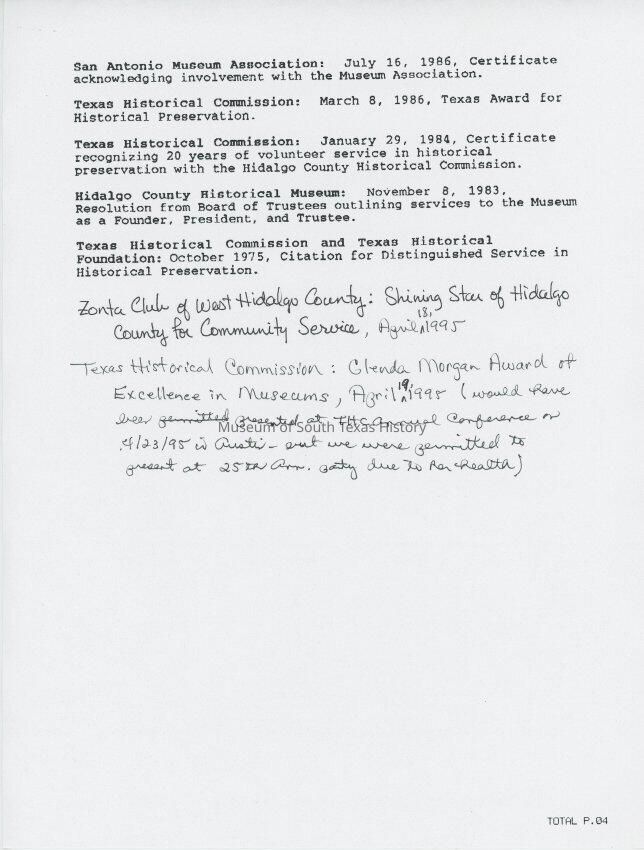 San Antonio Museum Association: July 16, 1986, Certificate
acknowledging involvement with the Museum Association.
Texas Historical Commission: March 8, 1986, Texas Award for
Historical Preservation.
Texas Historical Commission: January 29, 1984, Certificate
recognizing 20 years of volunteer service in historical
preservation with the Hidalgo County Historical Commission.
Hidalgo County Historical Museum: November 8, 1983,
Resolution from Board of Trustees outlining services to the Museum
as a Founder, President, and Trustee.
Texas Historical Commission and Texas Historical
Foundation: October 1975, Citation for Distinguished Service in
Historical Preservation.
Zonta Club of West Hidalgo County: Shining Star of Hidalgo
County for Community Service, April 18, 1995
Texas Historical Commission: Glenda Morgan Award of
Excellence in Museums, April 19, 1995 (would have
been permitted presented at THC Annual Conference on
Museum of South Texas History
4/23/95 in Austin - but we were permitted to
present at 25th Ann. party due to her health)
TOTAL P.04